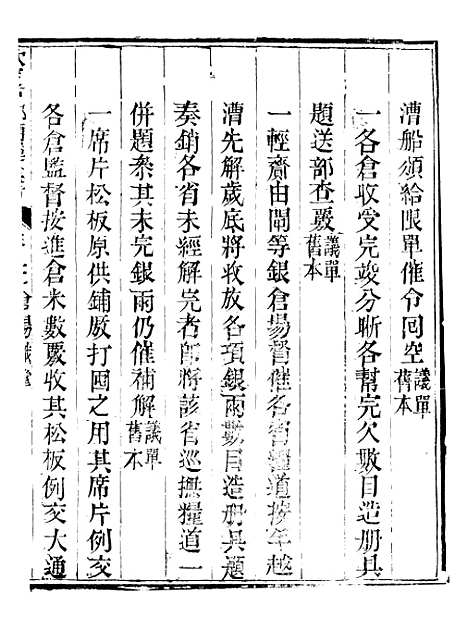 漕船頒給限單催令回空議單舊本
一各倉收受完竣分晰各幫完欠數目造册具
題送部查覈議單舊本
一輕齎由閘等銀倉場督催各省糧道按年趲
漕先解歲底將收放各項銀兩數目造册具題
奏銷各省未經解完者即將該省巡撫糧道一
併題叅其未完銀兩仍催補解議單舊本
一席片松板原供鋪廒打囤之用其席片例交
各倉監督按進倉米數覈收其松板例交大通
倉場職掌